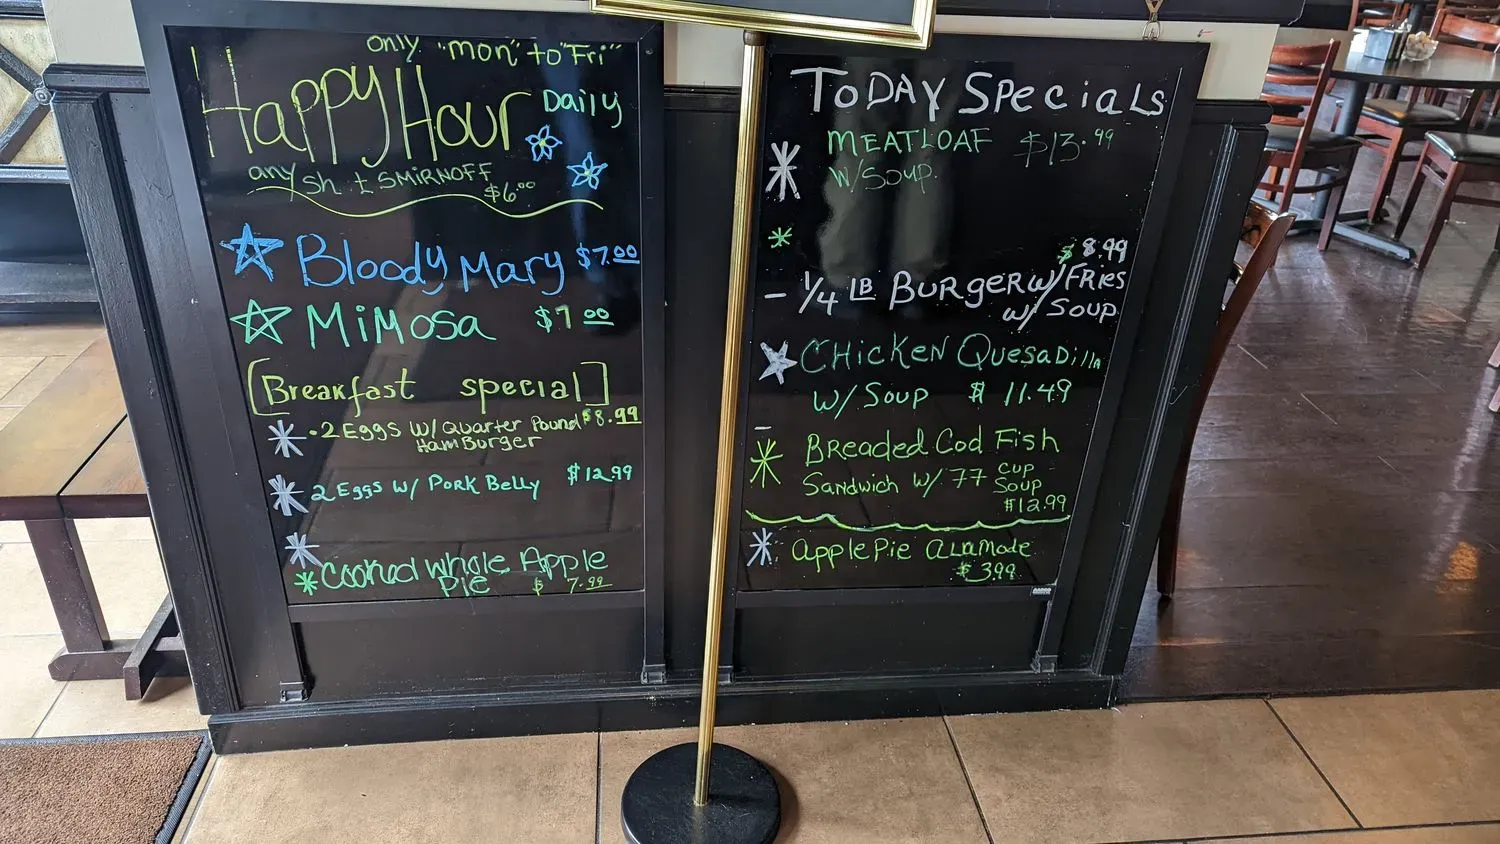 only "mon" to "Fri"
Happy Hour Daily
any sh ± SMIRNOFF
$6.00
Bloody Mary $7.00
MiMosa $7.00
[Breakfast special]
.2 Eggs w/ Quarter Pound $8.99
HamBurger
2 Eggs w/ Pork Belly $12.99
Cooked whole Apple
Pie $ 7.99
ToDAY SPeciaLs
MEATLOAF $13.99
W/SOUP.
$8.99
- 1/4 LB BURGER w/ FRies
w/ Soup
CHicKeN QuesaDilla
W/ Soup $ 11.49
-
BReaded Cod Fish
Sandwich w/ 77 cup
Soup
$12.99
apple Pie aLamode
$ 3.99